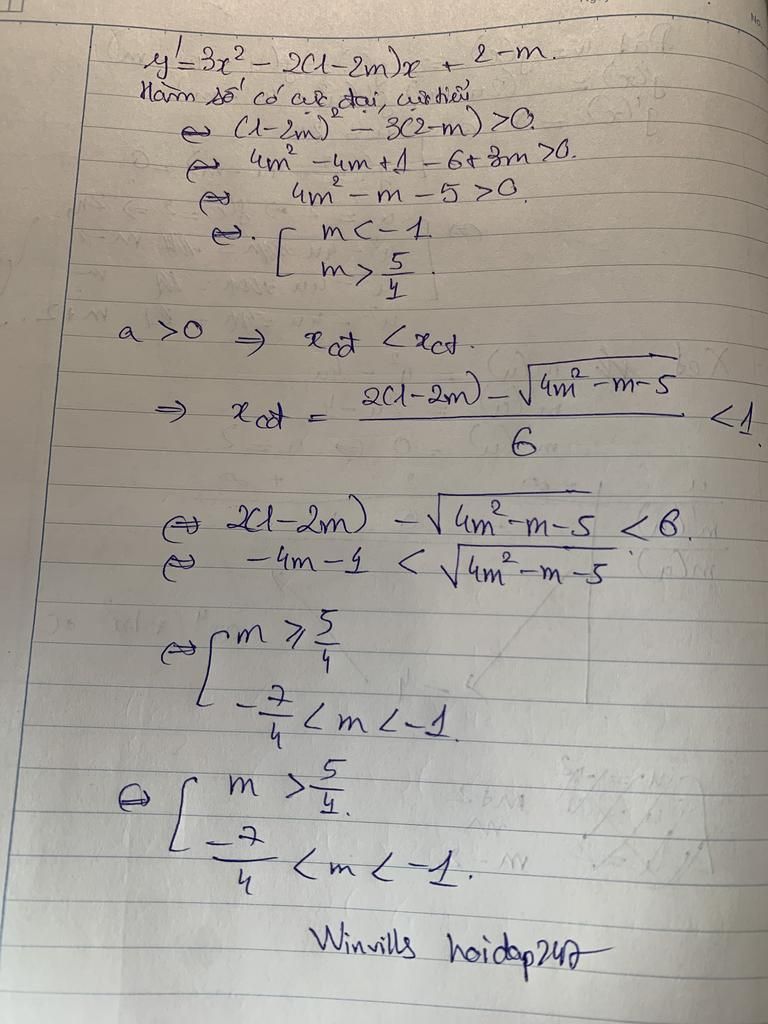 y' = 3x² - 2(1-2m)x + 2-m.
Hàm số có cực đại, cực tiểu
⇔ (1-2m)² - 3(2-m) > 0.
⇔ 4m² - 4m + 1 - 6 + 3m > 0.
⇔ 4m² - m - 5 > 0.
⇔. [ m < -1.
m > 5/4.
a > 0 ⇒ x_cđ < x_ct.
⇒ x_cđ = (2(1-2m) - √(4m² - m - 5))/6 < 1.
⇔ 2(1-2m) - √(4m² - m - 5) < 6.
⇔ -4m - 4 < √(4m² - m - 5)
⇔ [ m ⩾ 5/4
-7/4 < m < -1.
⇔ [ m > 5/4.
-7/4 < m < -1.
Winvills hoidap247